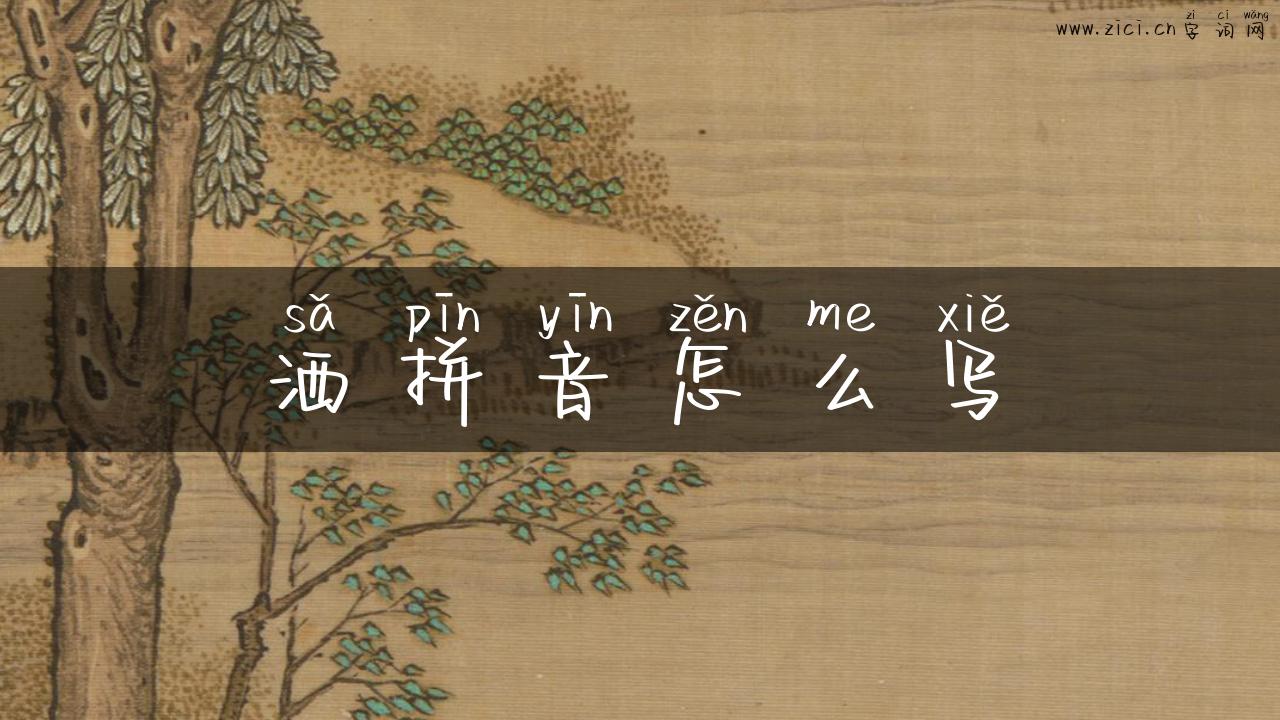 zì cí wǎng
www.zici.cn 字词网
sǎ pīn yīn zěn me xiě
洒拼音怎么写